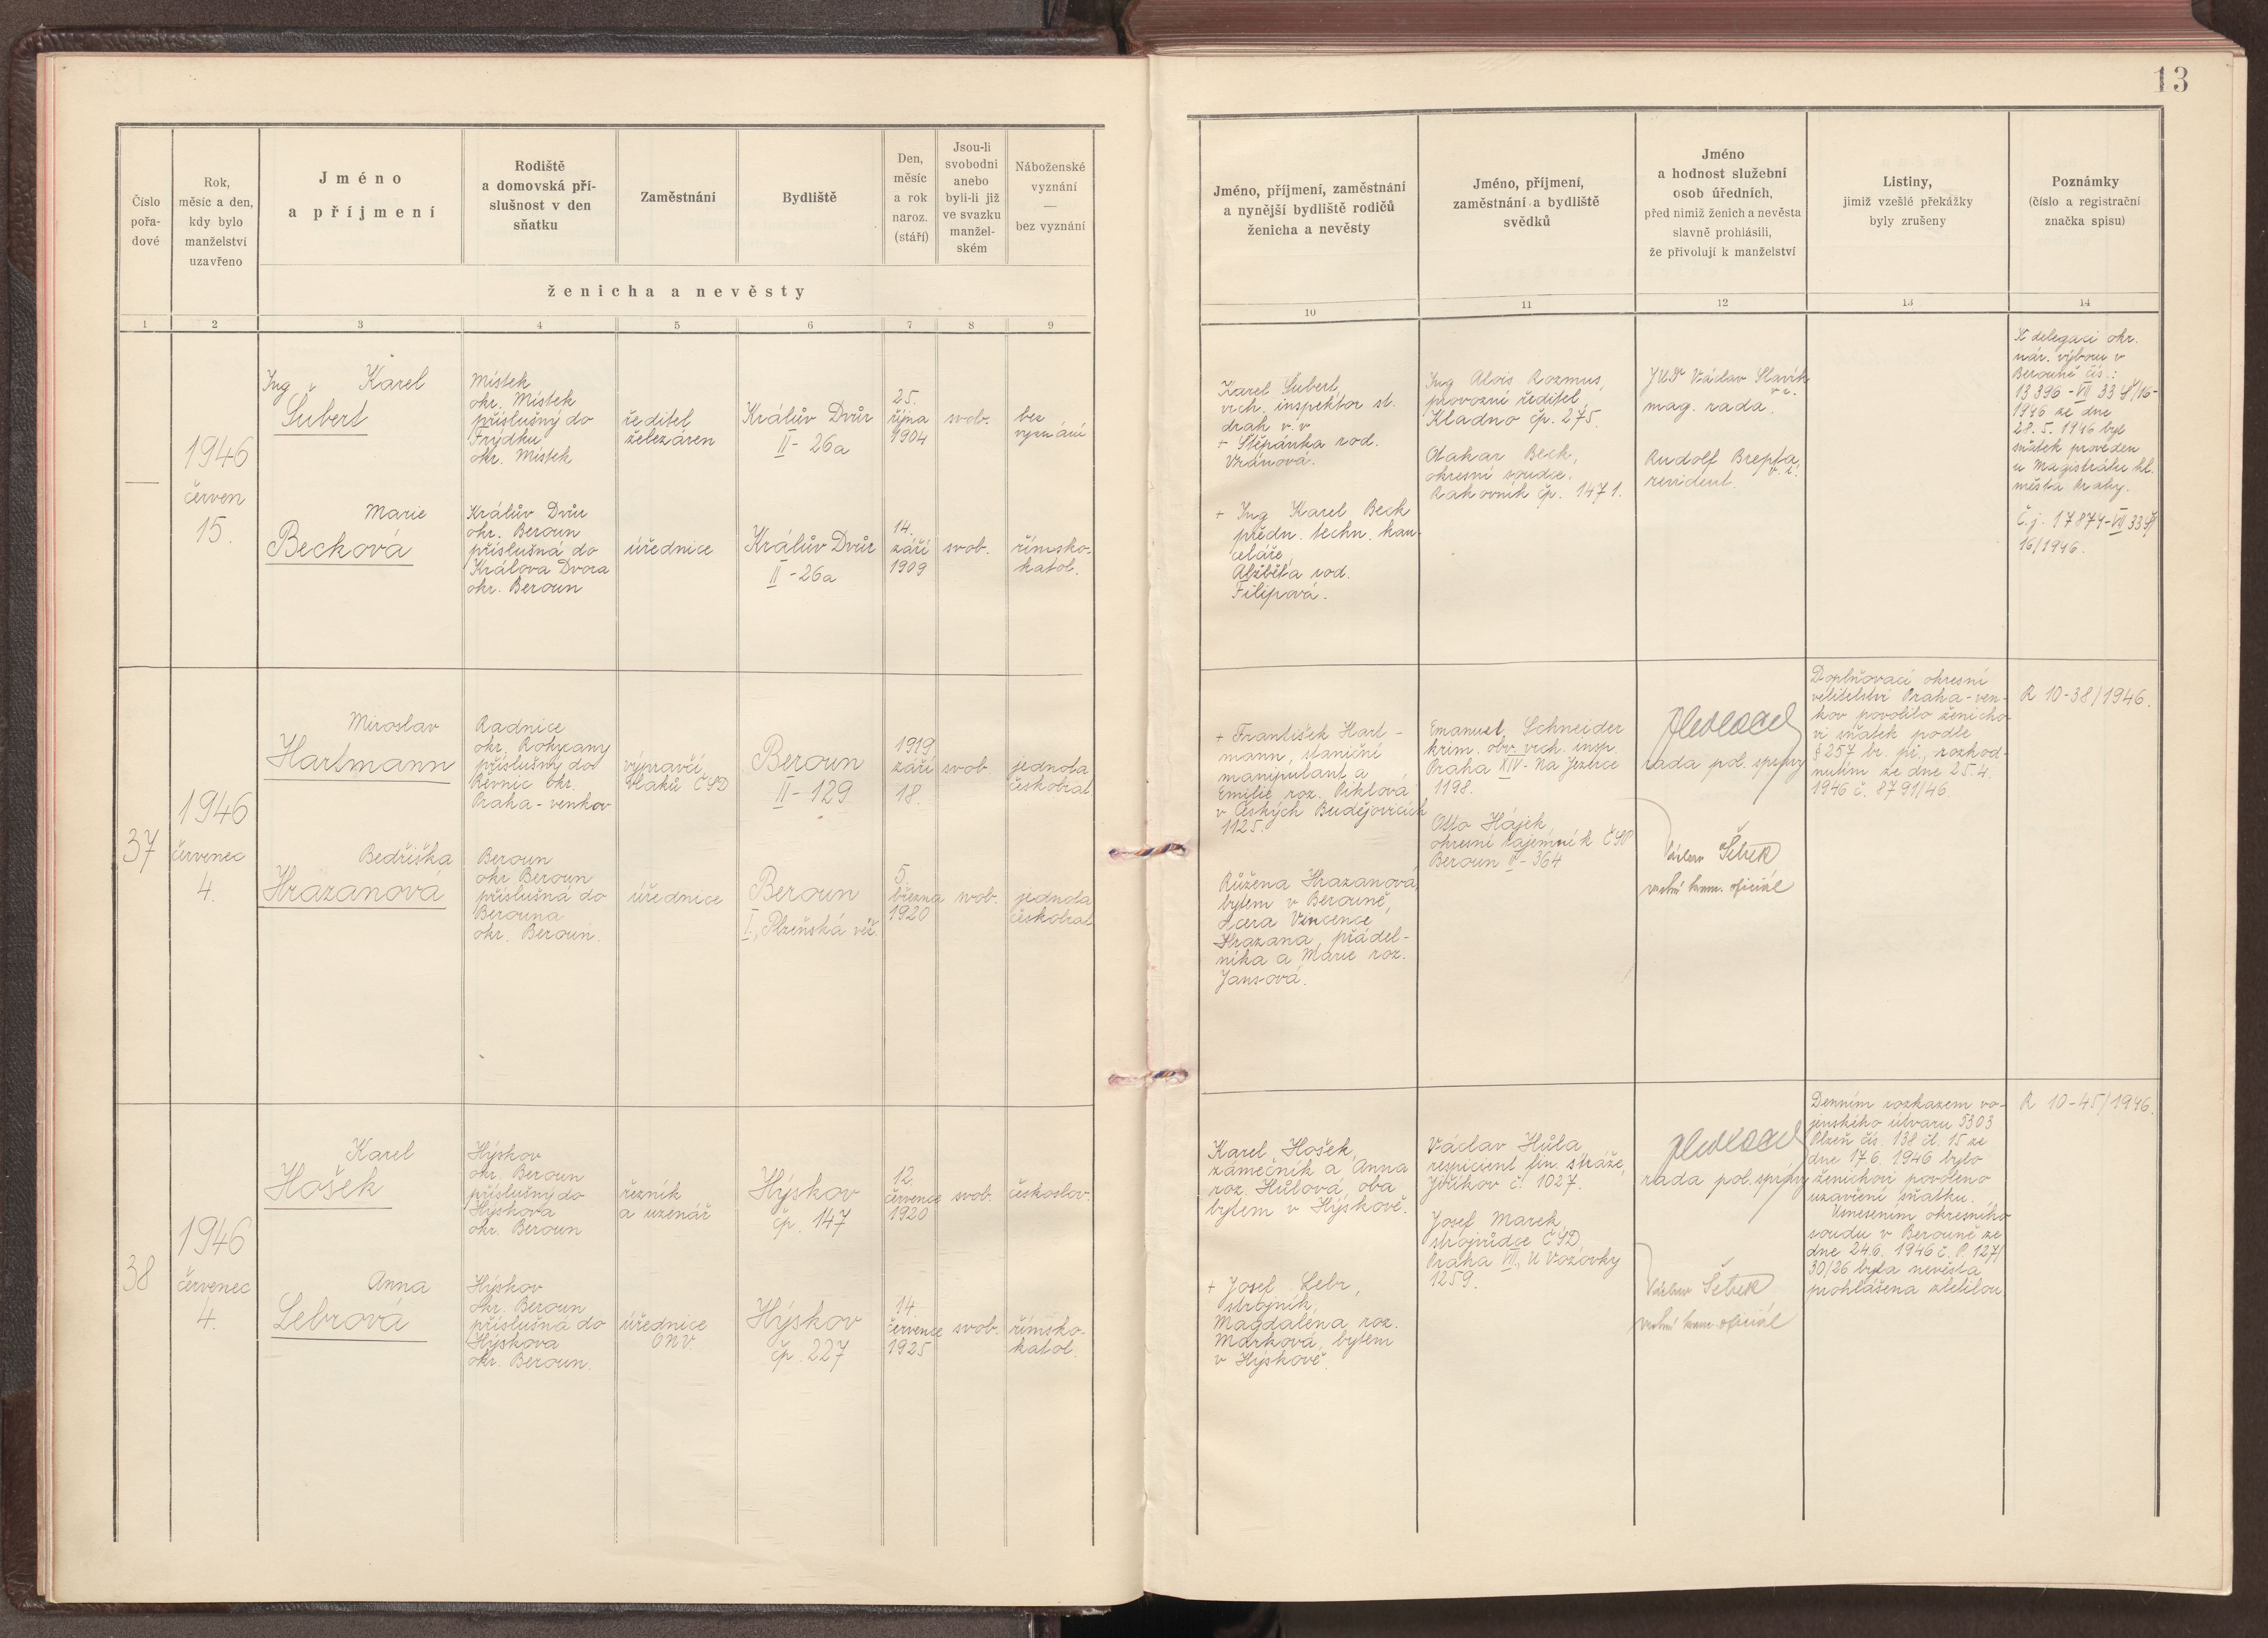 13
Číslo
pořa-
dové
Rok,
měsíc a den,
kdy bylo
manželství
uzavřeno
Jméno
a příjmení
Rodiště
a domovská pří-
slušnost v den
sňatku
Zaměstnání
Bydliště
Den,
měsíc
a rok
naroz.
(stáří)
Jsou-li
svobodni
anebo
byli-li již
ve svazku
manžel-
ském
Náboženské
vyznání
—
bez vyznání
ženicha a nevěsty
Jméno, příjmení, zaměstnání
a nynější bydliště rodičů
ženicha a nevěsty
Jméno, příjmení,
zaměstnání a bydliště
svědků
Jméno
a hodnost služební
osob úředních,
před nimiž ženich a nevěsta
slavně prohlásili,
že přivolují k manželství
Listiny,
jimiž vzešlé překážky
byly zrušeny
Poznámky
(číslo a registrační
značka spisu)
1 2 3 4 5 6 7 8 9 10 11 12 13 14
—
1946
červen
15.
Ing Karel
Šubert
Místek
okr. Místek
příslušný do
Frýdku
okr. Místek
ředitel
železáren
Králův Dvůr
II - 26a
25.
října
1904
svob.
bez
vyznání
Marie
Becková
Králův Dvůr
okr. Beroun
příslušná do
Králova Dvora
okr. Beroun
úřednice
Králův Dvůr
II - 26a
14.
září
1909
svob.
římsko-
katol.
Karel Šubert,
vrch. inspektor st.
drah v. v.
+ Štěpánka rod.
Vránová.
+ Ing Karel Beck
předn. techn. kan-
celáře,
Alžběta rod.
Filipová.
Ing Alois Rozmus,
provozní ředitel,
Kladno čp. 275.
Otakar Beck,
okresní soudce,
Rakovník čp. 1471.
JUDr Václav Slavík
v. r.
mag. rada.
Rudolf Brepta,
v. r.
revident.
K delegaci okr.
nár. výboru v
Berouně čís.:
13396-VII 33 Š/16-
1946 ze dne
28. 5. 1946 byl
sňatek proveden
u Magistrátu hl.
města Prahy.
Č. j. 17874-VII 33 Š/
16/1946.
37
1946
červenec
4.
Miroslav
Hartmann
Radnice
okr. Rokycany
příslušný do
Řevnic okr.
Praha - venkov
výpravčí
vlaků ČSD
Beroun
II - 129
1919
září
18.
svob
jednota
českobrat
Bedřiška
Hrazanová
Beroun
okr Beroun
příslušná do
Berouna
okr. Beroun.
úřednice
Beroun
I., Plzeňská
5.
března
1920
svob.
jednota
českobrat
+ František Hart-
mann, staniční
manipulant a
Emilie roz. Piklová
v Českých Budějovicích
1125.
Růžena Hrazanová,
bytem v Berouně,
dcera Vincence
Hrazana, přádel-
níka a Marie roz.
Jansová.
Emanuel Schneider
krim. obv. vrch. insp.
Praha XIV - Na Jezerce
1198.
Otto Hájek,
okresní tajemník ČSD
Beroun II - 364
rada pol. správy
Václav Šetek
vrchní kanc. oficiál
Doplňovací okresní
velitelství Praha-ven-
kov povolilo ženicho-
vi sňatek podle
§ 257 br. př., rozhod-
nutím ze dne 25. 4.
1946 č. 8791/46.
R 10-38/1946.
38
1946
červenec
4.
Karel
Hošek
Hýskov
okr. Beroun
příslušný do
Hýskova
okr. Beroun
řezník
a uzenář
Hýskov
čp. 147
12.
července
1920
svob.
českoslov.
Anna
Lebrová
Hýskov
okr. Beroun
příslušná do
Hýskova
okr. Beroun.
úřednice
ONV.
Hýskov
čp. 227
14.
července
1925
svob.
římsko-
katol.
Karel Hošek,
zámečník a Anna
roz. Hůlová, oba
bytem v Hýskově.
+ Josef Lebr,
strojník,
Magdaléna roz.
Marková, bytem
v Hýskově.
Václav Hůla
respicient fin. stráže,
Jiříkov č. 1027.
Josef Marek,
strojvůdce ČSD,
Praha VII, U Vozovky
1259.
rada pol. správy
Václav Šetek
vrchní kanc. oficiál
Denním rozkazem vo-
jenského útvaru 5303
Plzeň čís. 138 čl. 15 ze
dne 17.6. 1946 bylo
ženichovi povoleno
uzavření sňatku.
Usnesením okresního
soudu v Berouně ze
dne 24.6. 1946 č. P. 127/
30/26 byla nevěsta
prohlášena zletilou.
R 10-45/1946.